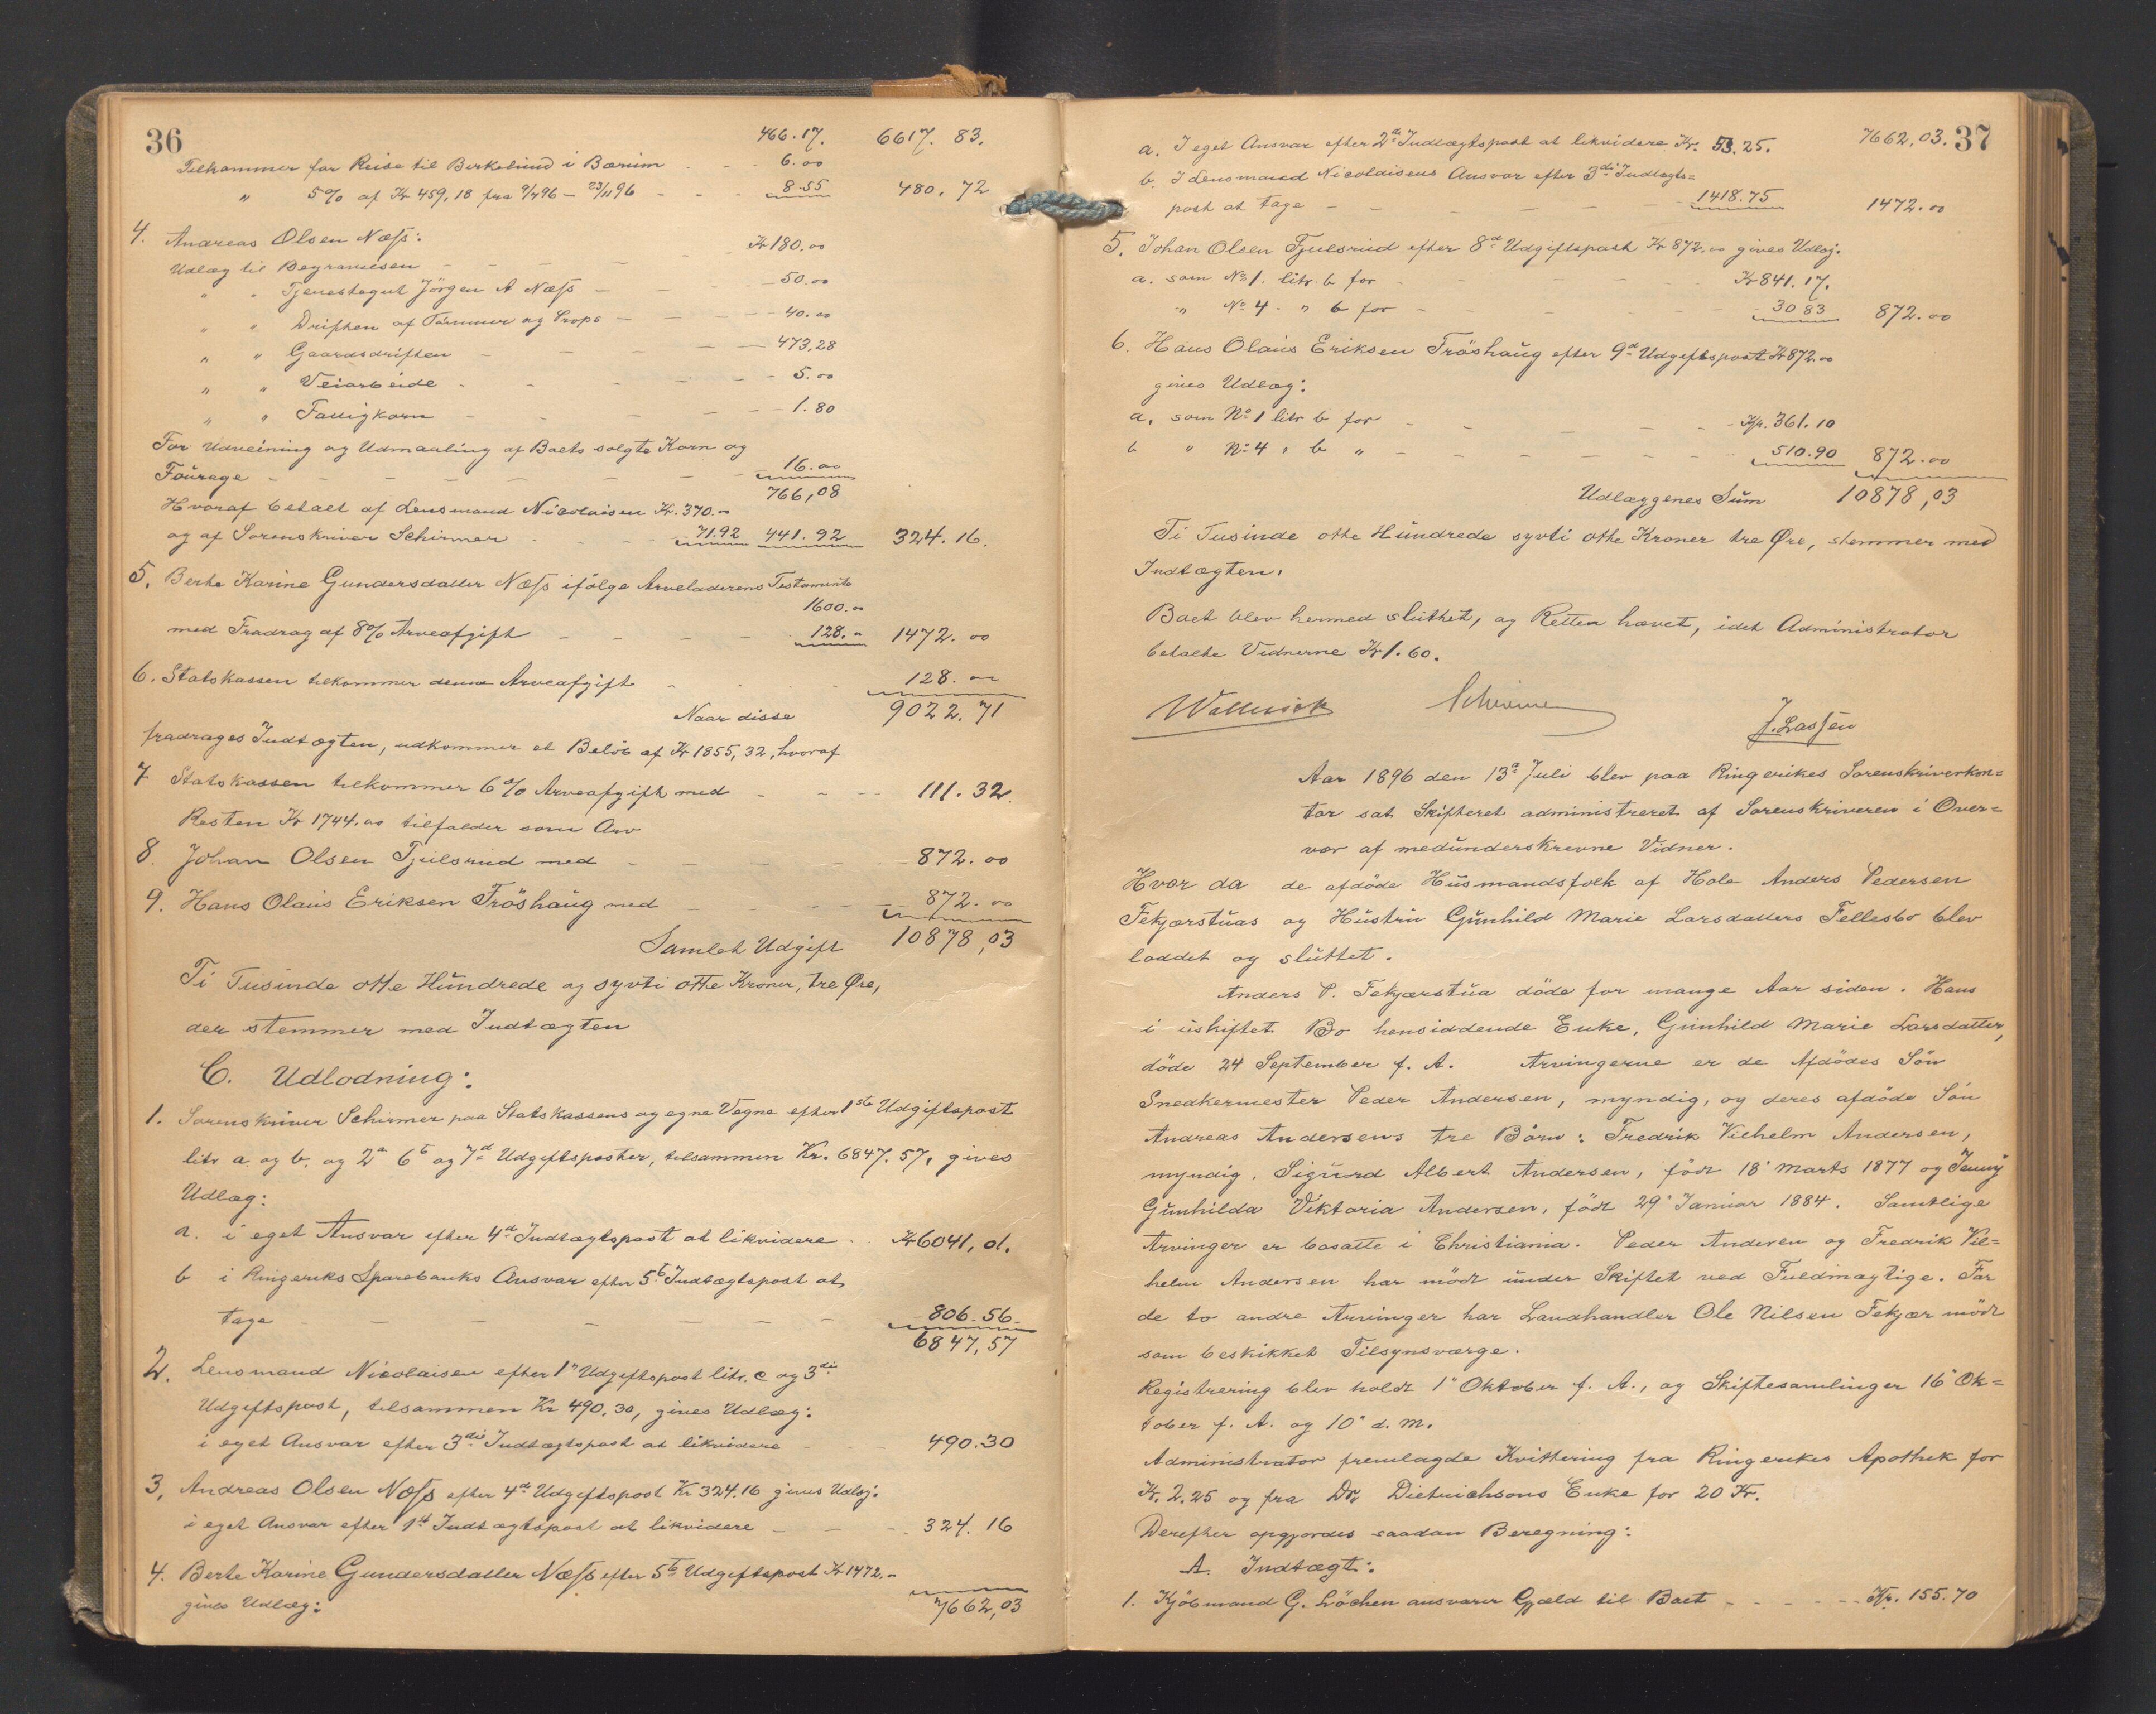 36
466.17. 6617. 83.
Tilkommer for Reise til Birkelund i Bærum - - - 6.00
" 5% af Kr 459,18 fra 9/7 96 - 23/11 96 - - - 8.55 480,72
4. Andreas Olsen Næss:
Udlæg til Begravelsen - - - - Kr 180.00
" " Tjenestegut Jörgen A Næss - - - 50.00
" " Driften af Tømmer og Props - - - - 40.00
" " Gaardsdriften - - - - 473,28
" " Veiarbeide - - - - 5.00
" " Fattigkorn - - - - 1.80
For Udveining og Udmaaling af Boets solgte Korn og
Fourage - - - - - 16.00
766,08
Hvoraf betalt af Lensmand Nicolaisen Kr. 370.-
og af Sorenskriver Schirmer - - - 71.92 441.92 324.16.
5. Berte Karine Gundersdatter Næss ifölge Arveladerens Testamente
1600.00
med Fradrag af 8% Arveafgift - - - - 128.- 1472.00
6. Statskassen tilkommer denne Arveafgift - - - 128.00
Naar disse 9022.71
fradrages Indtægten, udkommer et Belöb af Kr 1855,32, hvoraf
7 Statskassen tilkommer 6% Arveafgift med - - - 111.32.
Resten Kr 1744.00 tilfalder som Arv
8. Johan Olsen Tjulsrud med - - - - 872.00
9. Hans Olaus Eriksen Fröshaug med - - - 872.00
Samlet Udgift 10878,03
Ti Tusinde otte Hundrede og syvti otte Kroner, tre Øre,
der stemmer med Indtægten
C. Udlodning:
1. Sorenskriver Schirmer paa Statskassens og egne Vegne efter 1ste Udgiftspost
litr a. og b. og 2a 6te og 7de Udgiftsposter, tilsammen Kr. 6847.57, gives
Udlæg:
a. i eget Ansvar efter 4de Indtægtspost at likvidere - Kr 6041,01.
b i Ringeriks Sparebanks Ansvar efter 5te Indtægtspost at
tage - - - - - - 806.56
6847,57
2. Lensmand Nicolaisen efter 1" Udgiftspost litr. c og 3die
Udgiftspost, tilsammen Kr 490,30, gives Udlæg:
i eget Ansvar efter 3die Indtægtspost at likvidere - - 490.30
3, Andreas Olsen Næss efter 4de Udgiftspost Kr 324.16 gives Udlæg:
i eget Ansvar efter 1st Indtægtspost at likvidere - - - 324.16
4. Berte Karine Gundersdatter Næss efter 5te Udgiftspost Kr 1472.-
gives Udlæg: 7662,03
37
7662,03.
a. I eget Ansvar efter 2de Indtægtspost at likvidere Kr. 53.25.
b. I Lensmand Nicolaisens Ansvar efter 3die Indtægts=
post at tage - - - - - 1418.75 1472.00
5. Johan Olsen Tjulsrud efter 8de Udgiftspost Kr 872.00 gives Udlæg:
a. som No 1. litr. b for - - - - Kr 841.17.
" No 4. " b for - - - - 30 83 872.00
6. Hans Olaus Eriksen Fröshaug efter 9de Udgiftspost Kr 872.00
gives Udlæg:
a. som No 1 litr b for - - - - Kr. 361.10
b " No 4 " b " - - - - - 510.90 872.00
Udlæggenes Sum 10878,03
Ti Tusinde otte Hundrede syvti otte Kroner tre Øre, stemmer med
Indtægten.
Boet blev hermed sluttet, og Retten hævet, idet Administrator
betalte Vidnerne Kr 1.60.
Schirmer
J. Lassen
Aar 1896 den 13de Juli blev paa Ringerikes Sorenskriverkon=
tor sat Skifteret administreret af Sorenskriveren i Over=
vær af medunderskrevne Vidner.
Hvor da de afdöde Husmandsfolk af Hole Anders Pedersen
Fekjærstuas og Hustru Gunhild Marie Larsdatters Fellesbo blev
loddet og sluttet.
Anders P. Fekjærstua döde for mange Aar siden. Hans
i uskiftet Bo hensiddende Enke, Gunhild Marie Larsdatter,
döde 24 September f. A. Arvingerne er de Afdödes Sön
Snedkermester Peder Andersen, myndig, og deres afdöde Sön
Andreas Andersens tre Börn: Fredrik Vilhelm Andersen,
myndig, Sigurd Albert Andersen, födt 18' Marts 1877 og Jenny
Gunhilda Viktoria Andersen, födt 29' Januar 1884. Samtlige
Arvinger er bosatte i Christiania. Peder Andersen og Fredrik Vil=
helm Andersen har mödt under Skiftet ved Fuldmægtige. For
de to andre Arvinger har Landhandler Ole Nilsen Fekjær mödt
som beskikket Tilsynsværge.
Registrering blev holdt 1" Oktober f. A., og Skiftesamlinger 16' Ok=
tober f. A. og 10' d. M.
Administrator fremlagde Kvittering fra Ringerikes Apothek for
Kr. 2.25 og fra Dr. Dietrichsons Enke for 20 Kr.
Derefter opgjordes saadan Beregning:
A. Indtægt:
1. Kjöbmand G. Löchen ansvarer Gjæld til Boet - - - - Kr. 155.70